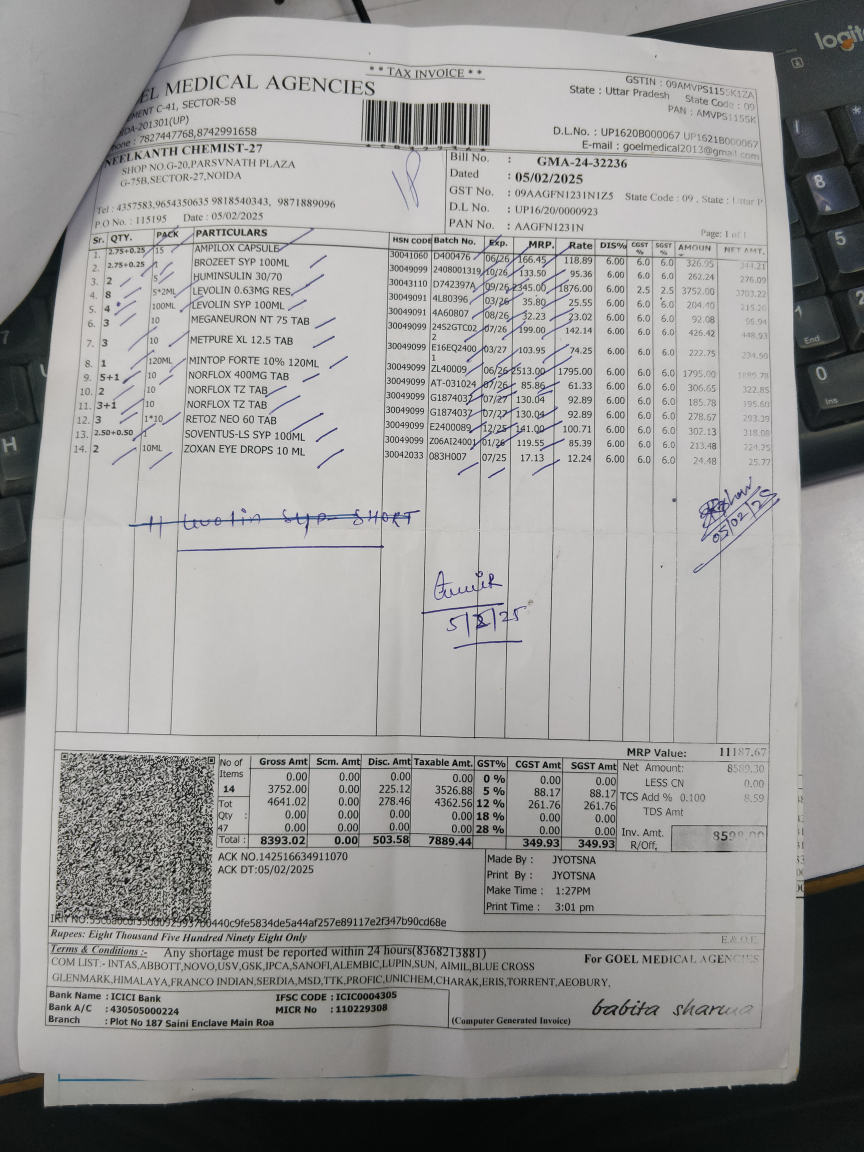 logite
** TAX INVOICE **
EL MEDICAL AGENCIES
MENT C-41, SECTOR-58
DA-201301(UP)
hone : 7827447768,8742991658
GSTIN : 09AMVPS1155K1ZA
State : Uttar Pradesh State Code : 09
PAN : AMVPS1155K
D.L.No. : UP1620B000067 UP1621B000067
E-mail : goelmedical2013@gmail.com
NEELKANTH CHEMIST-27
SHOP NO.G-20,PARSVNATH PLAZA
G-75B,SECTOR-27,NOIDA
Tel : 4357583,9654350635 9818540343, 9871889096
P.O No. : 115195 Date : 05/02/2025
18
Bill No. : GMA-24-32236
Dated : 05/02/2025
GST No. : 09AAGFN1231N1Z5 State Code : 09 , State : Uttar P
D.L No. : UP16/20/0000923
PAN No. : AAGFN1231N
Page: 1 of 1
Sr. QTY. PACK PARTICULARS HSN CODE Batch No. Exp. MRP. Rate DIS% CGST % SGST % AMOUN NET AMT.
1. 2.75+0.25 15 AMPILOX CAPSULE 30041060 D400476 06/26 166.45 118.89 6.00 6.0 6.0 326.95 344.21
2. 2.75+0.25 BROZEET SYP 100ML 30049099 2408001319 10/26 133.50 95.36 6.00 6.0 6.0 262.24 276.09
3. 2 5 HUMINSULIN 30/70 30043110 D742397A 09/26 2345.00 1876.00 6.00 2.5 2.5 3752.00 3703.22
4. 8 5*2ML LEVOLIN 0.63MG RES 30049091 4L80396 03/26 35.80 25.55 6.00 6.0 6.0 204.40 215.20
5. 4 100ML LEVOLIN SYP 100ML 30049091 4A60807 08/26 32.23 23.02 6.00 6.0 6.0 92.08 96.94
6. 3 10 MEGANEURON NT 75 TAB 30049099 24S2GTC02 2 07/26 199.00 142.14 6.00 6.0 6.0 426.42 448.93
7. 3 10 METPURE XL 12.5 TAB 30049099 E16EQ2400 1 03/27 103.95 74.25 6.00 6.0 6.0 222.75 234.50
8. 1 120ML MINTOP FORTE 10% 120ML 30049099 ZL40009 06/26 2513.00 1795.00 6.00 6.0 6.0 1795.00 1889.78
9. 5+1 10 NORFLOX 400MG TAB 30049099 AT-031024 07/26 85.86 61.33 6.00 6.0 6.0 306.65 322.85
10. 2 10 NORFLOX TZ TAB 30049099 G1874037 07/27 130.04 92.89 6.00 6.0 6.0 185.78 195.60
11. 3+1 10 NORFLOX TZ TAB 30049099 G1874037 07/27 130.04 92.89 6.00 6.0 6.0 278.67 293.39
12. 3 1*10 RETOZ NEO 60 TAB 30049099 E2400089 12/25 141.00 100.71 6.00 6.0 6.0 302.13 318.08
13. 2.50+0.50 1 SOVENTUS-LS SYP 100ML 30049099 Z06AI24001 01/26 119.55 85.39 6.00 6.0 6.0 213.48 224.75
14. 2 10ML ZOXAN EYE DROPS 10 ML 30042033 083H007 07/25 17.13 12.24 6.00 6.0 6.0 24.48 25.77
Levolin Syp SHORT
05/02/25
5/2/25
MRP Value: 11187.67
No of Items Gross Amt Scm. Amt Disc. Amt Taxable Amt. GST% CGST Amt SGST Amt
0.00 0.00 0.00 0.00 0 % 0.00 0.00
14 3752.00 0.00 225.12 3526.88 5 % 88.17 88.17
Tot 4641.02 0.00 278.46 4362.56 12 % 261.76 261.76
Qty : 0.00 0.00 0.00 0.00 18 % 0.00 0.00
47 0.00 0.00 0.00 0.00 28 % 0.00 0.00
Total : 8393.02 0.00 503.58 7889.44 349.93 349.93
Net Amount: 8589.30
LESS CN 0.00
TCS Add % 0.100 8.59
TDS Amt
Inv. Amt. 8598.00
R/Off,
ACK NO.142516634911070
ACK DT:05/02/2025
Made By : JYOTSNA
Print By : JYOTSNA
Make Time : 1:27PM
Print Time : 3:01 pm
Rupees: Eight Thousand Five Hundred Ninety Eight Only
E.&.O.E
Terms & Conditions :- Any shortage must be reported within 24 hours(8368213881)
COM LIST:- INTAS,ABBOTT,NOVO,USV,GSK,IPCA,SANOFI,ALEMBIC,LUPIN,SUN, AIMIL,BLUE CROSS
GLENMARK,HIMALAYA,FRANCO INDIAN,SERDIA,MSD,TTK,PROFIC,UNICHEM,CHARAK,ERIS,TORRENT,AEOBURY,
For GOEL MEDICAL AGENCIES
Bank Name : ICICI Bank IFSC CODE : ICIC0004305
Bank A/C : 430505000224 MICR No : 110229308
Branch : Plot No 187 Saini Enclave Main Roa
(Computer Generated Invoice)
babita sharma